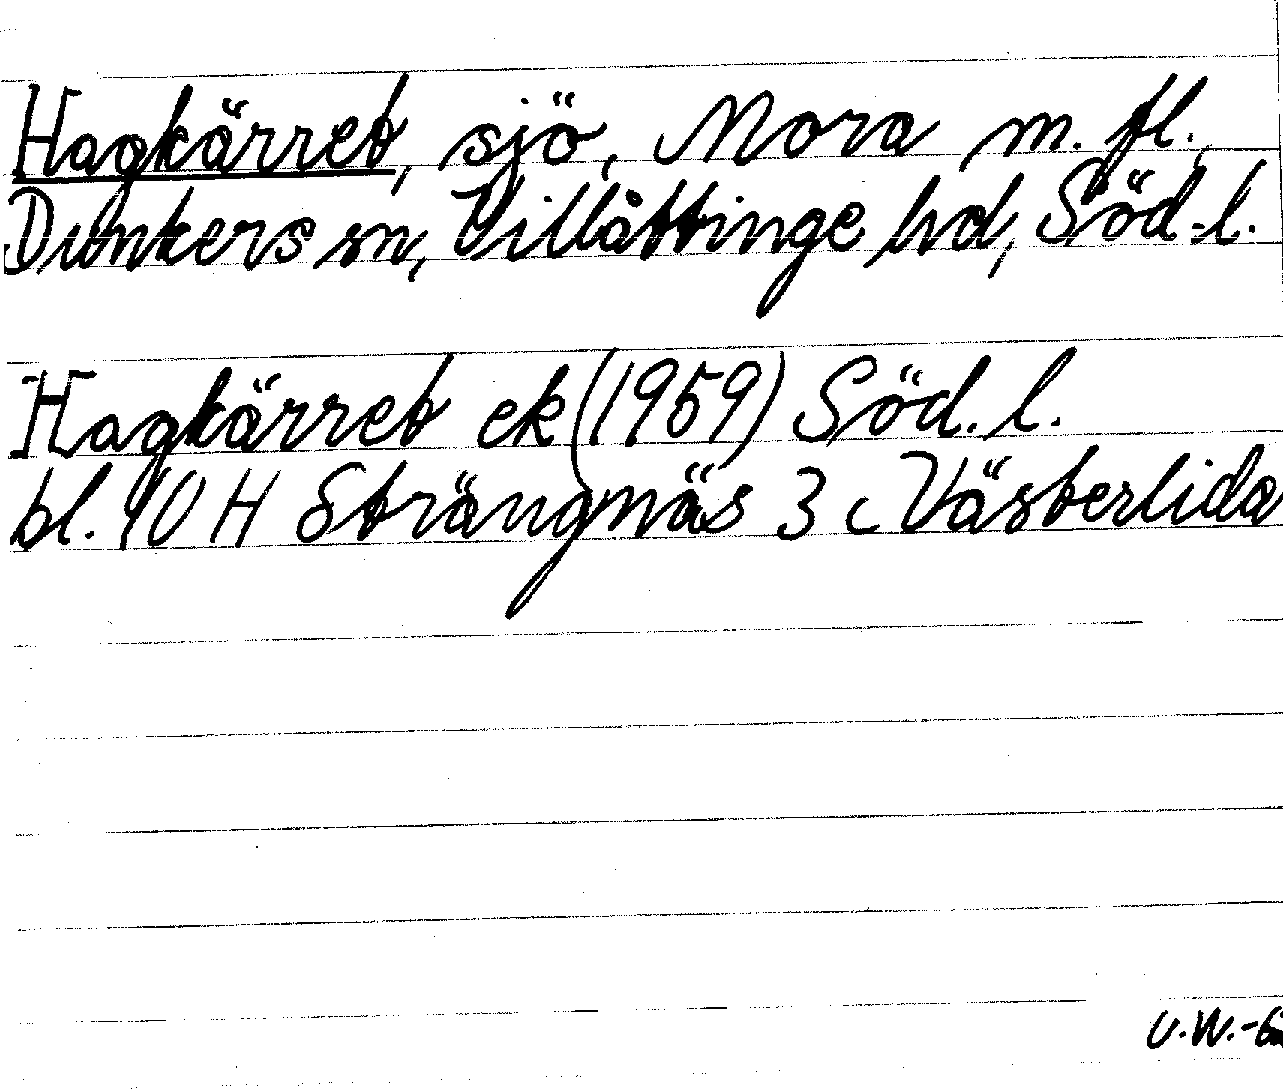 Hagkärret, sjö, Mora m. fl.,
Dunkers sn, Villåttinge hd, Söd.l.
Hagkärret ek (1959) Söd. l.
bl. 10 H Strängnäs 3 c Västerlida
U.W.-6